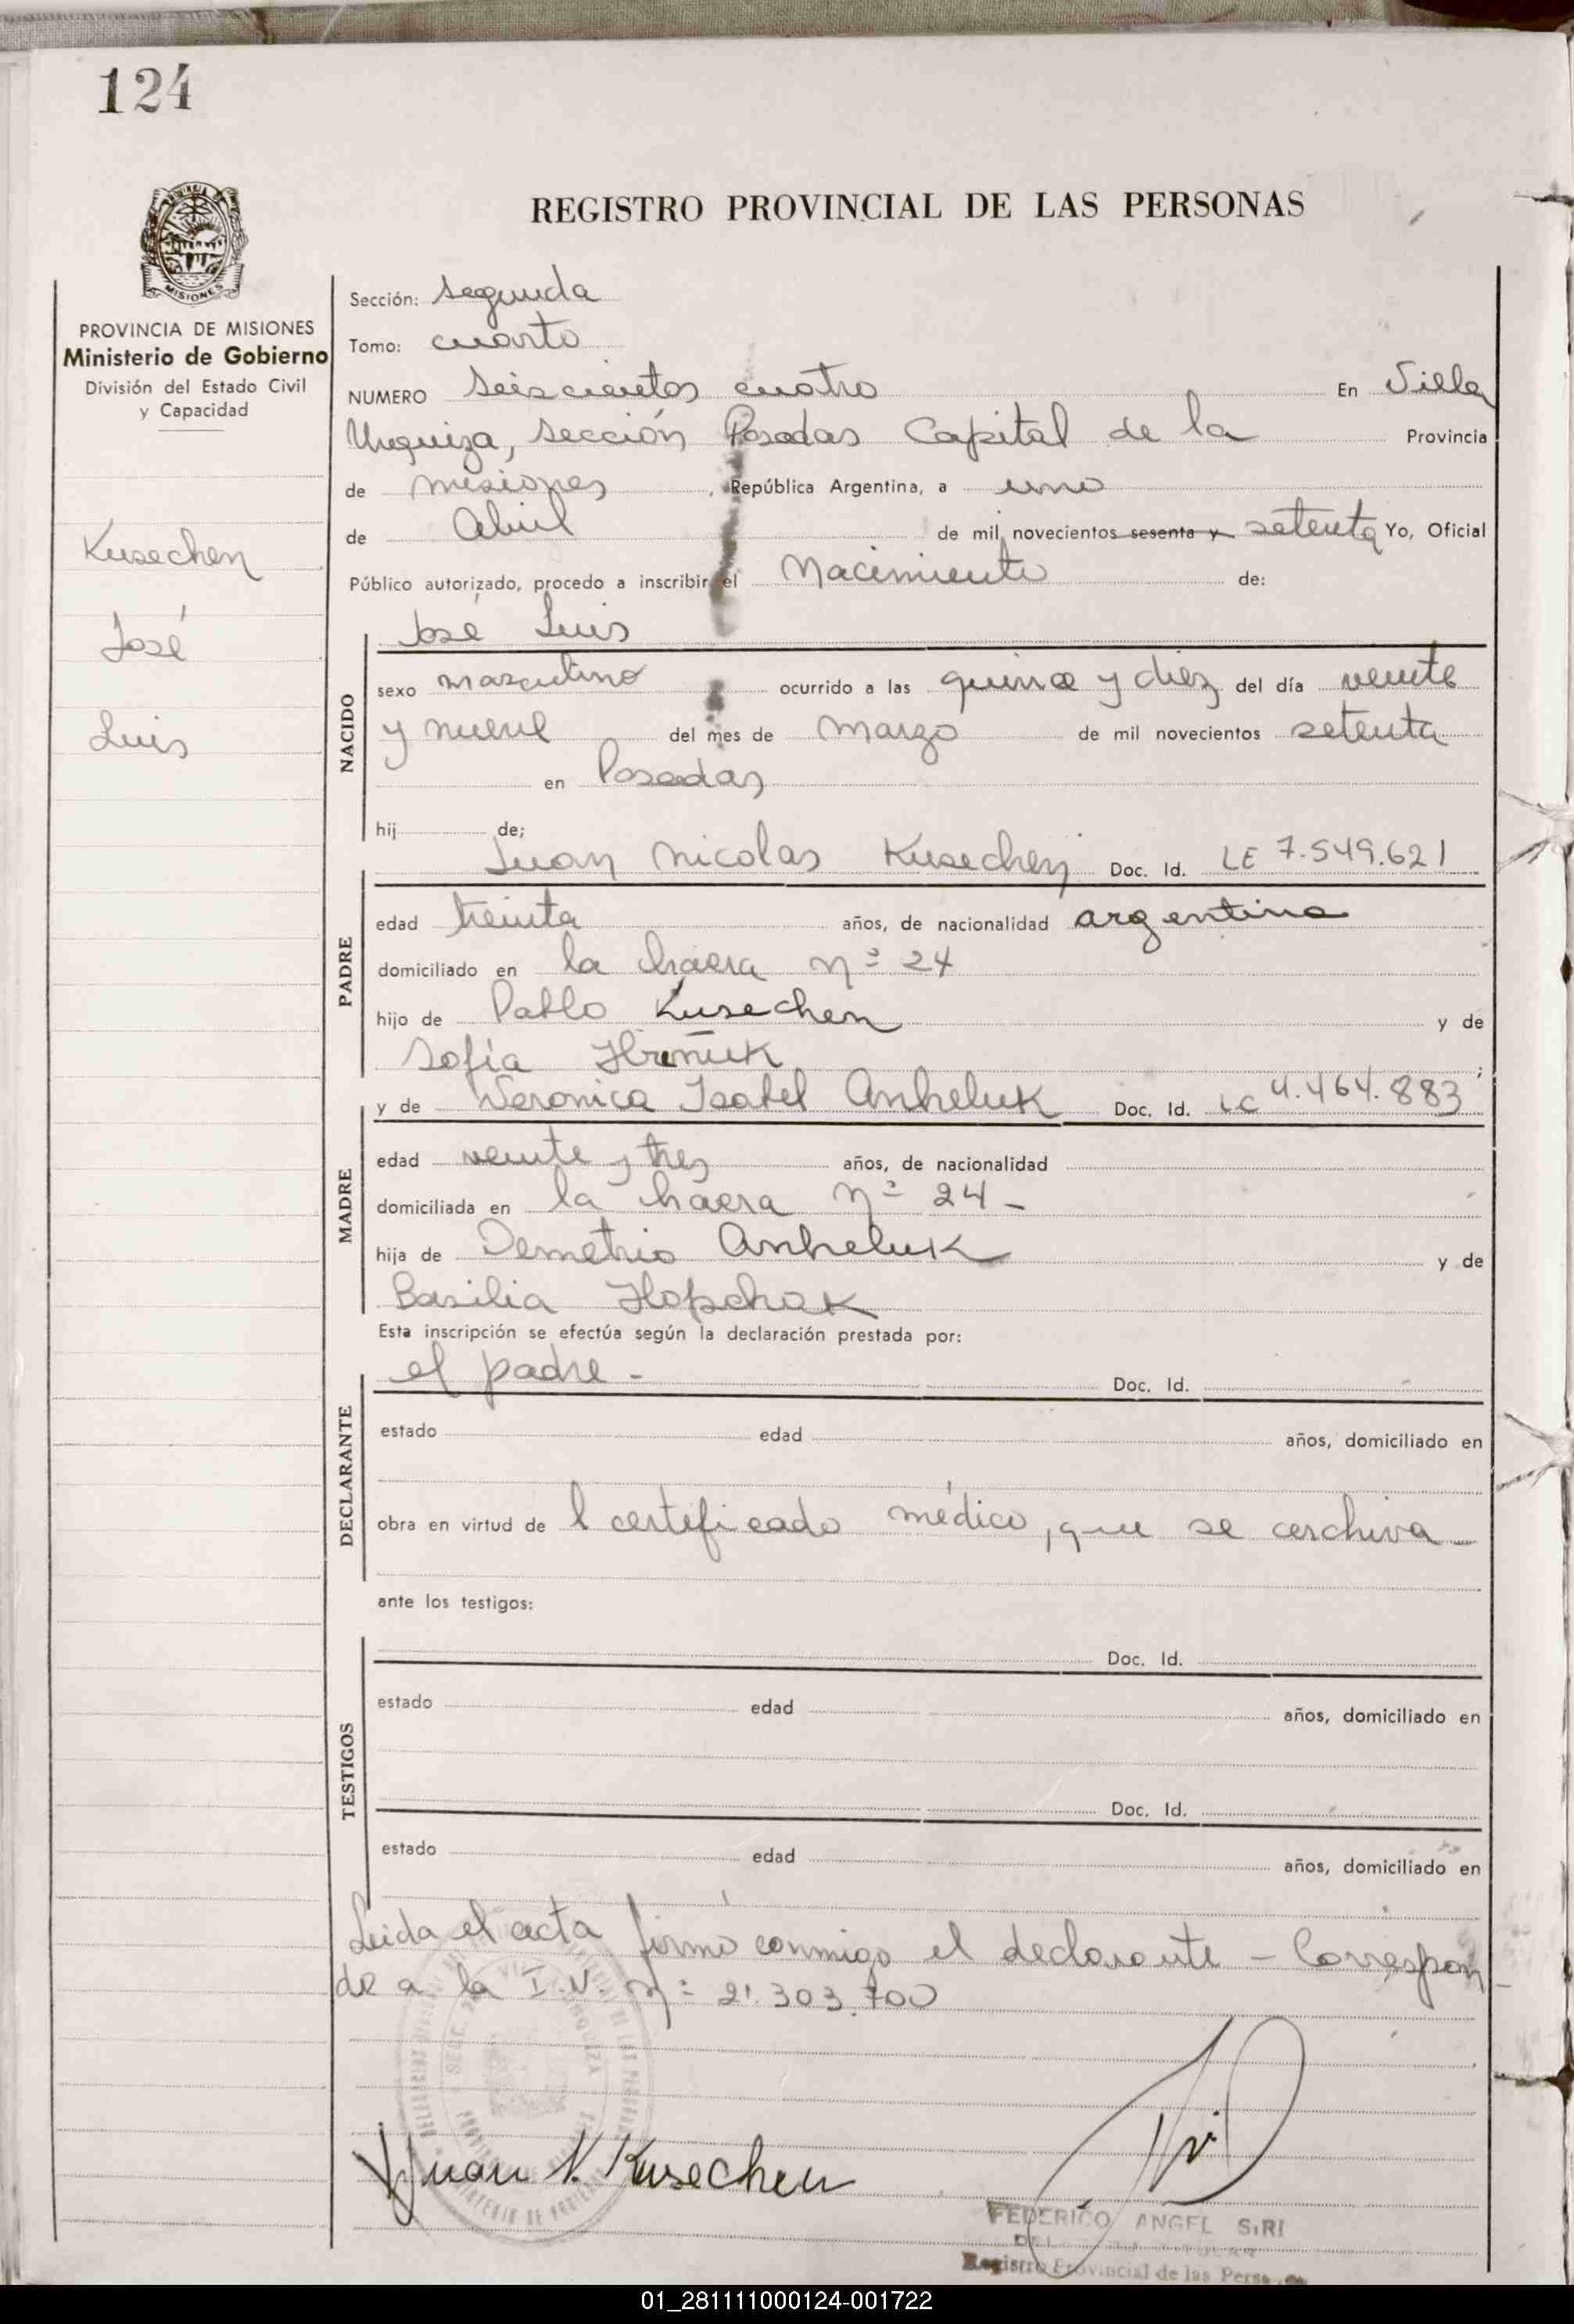 124
REGISTRO PROVINCIAL DE LAS PERSONAS
MISIONES
PROVINCIA DE MISIONES
Ministerio de Gobierno
División del Estado Civil
y Capacidad
Kusechen
José
Luis
Sección: segunda
Tomo: cuarto
NUMERO Seiscientos cuatro En Villa
Urquiza, sección Posadas Capital de la Provincia
de misiones, República Argentina, a uno
de Abril de mil novecientos sesenta y setenta Yo, Oficial
Público autorizado, procedo a inscribir el Nacimiento de:
José Luis
NACIDO
sexo masculino ocurrido a las quince y diez del día veinte
y nueve del mes de marzo de mil novecientos setenta
en Posadas
hij de;
Juan Nicolas Kusechen Doc. Id. LE 7.549.621
PADRE
edad treinta años, de nacionalidad argentina
domiciliado en la chacra nº 24
hijo de Pablo Kusechen y de
Sofía Hriñuk ;
y de Veronica Isabel Anheluk Doc. Id. LC 4.464.883
MADRE
edad veinte y tres años, de nacionalidad
domiciliada en la chacra nº 24 -
hija de Demetrio Anheluk y de
Basilia Hopchak
Esta inscripción se efectúa según la declaración prestada por:
el padre - Doc. Id.
DECLARANTE
estado edad años, domiciliado en
obra en virtud de l certificado médico, que se archiva
ante los testigos:
Doc. Id.
TESTIGOS
estado edad años, domiciliado en
Doc. Id.
estado edad años, domiciliado en
Leida el acta firmó conmigo el declarante - Correspon
de a la I.V. nº 21.303.700
Juan N. Kusechen
FEDERICO ANGEL SIRI
Registro Provincial de las Personas
01_281111000124-001722